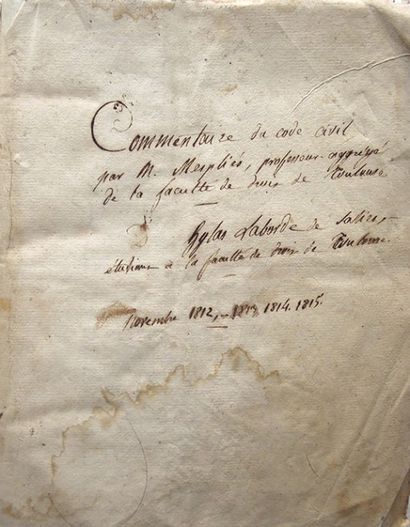 Commentaire du code civil
par M. professeur aggrégé
de la faculté de droit de Toulouse
Hylas Laborde de Salies,
étudiant à la faculté de droit de Toulouse.
Novembre 1812, - 1813, 1814. 1815.